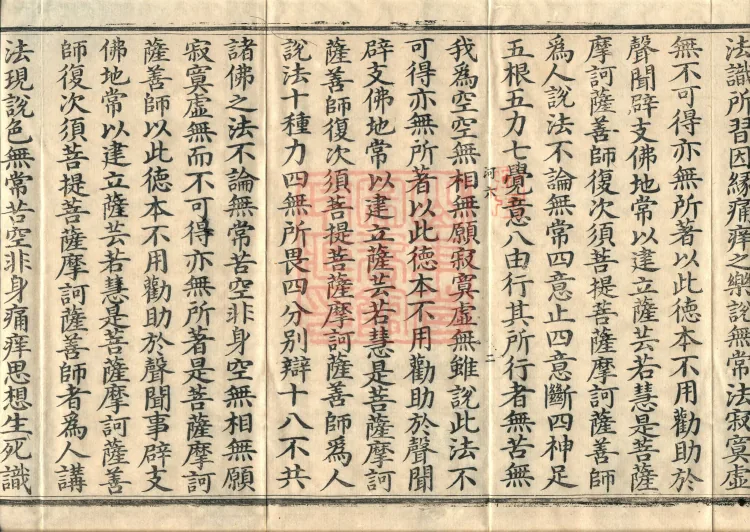 法識所習因緣痛痒之樂說無常法寂寞虛
無不可得亦無所著以此德本不用勸助於
聲聞辟支佛地常以建立薩芸若慧是菩薩
摩訶薩善師復次須菩提菩薩摩訶薩善師
爲人說法不論無常四意止四意斷四神足
五根五力七覺意八由行其所行者無苦無
河六
二
我爲空空無相無願寂寞虛無雖說此法不
可得亦無所著以此德本不用勸助於聲聞
辟支佛地常以建立薩芸若慧是菩薩摩訶
薩善師復次須菩提菩薩摩訶薩善師爲人
說法十種力四無所畏四分別辯十八不共
諸佛之法不論無常苦空非身空無相無願
寂寞虛無而不可得亦無所著是菩薩摩訶
薩善師以此德本不用勸助於聲聞事辟支
佛地常以建立薩芸若慧是菩薩摩訶薩善
師復次須菩提菩薩摩訶薩善師者爲人講
法現說色無常苦空非身痛痒思想生死識